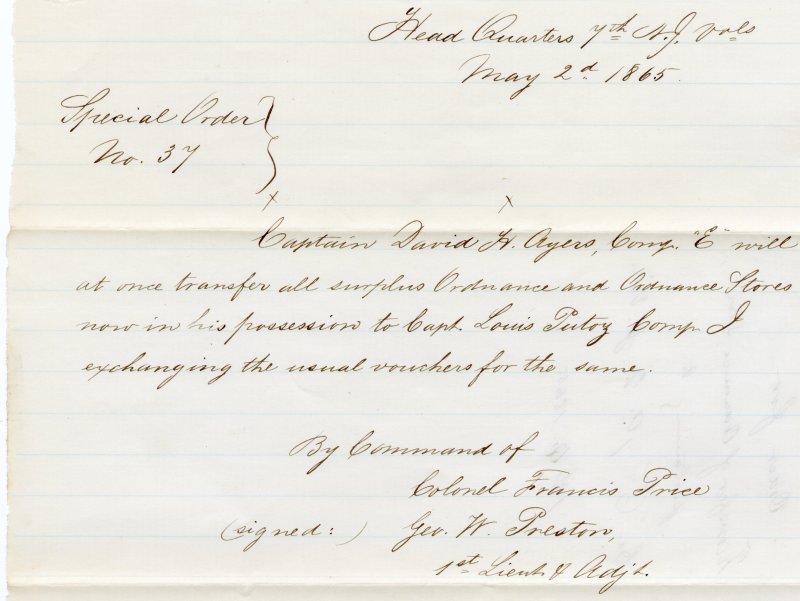 Head Quarters 7th N.J. Vols
May 2d 1865.
Special Order
No. 37
Captain David H. Ayers, Comp. "E" will
at once transfer all surplus Ordnance and Ordnance Stores
now in his possession to Capt. Louis Putoz Comp I
exchanging the usual vouchers for the same.
By Command of
Colonel Francis Price
(signed:) Geo. W. Preston,
1st Lieut & Adjt.